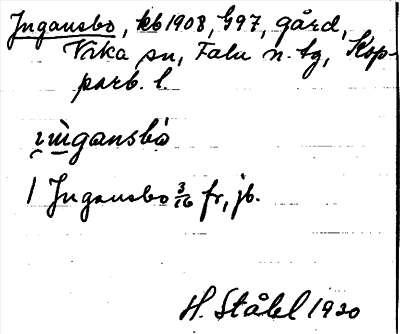 Ingansbo, kb 1908, G97, gård,
Vika sn, Falu n. tg, Kop-
parb. l.
ıṅgansbo
1 Ingansbo 3/16 fr, jb.
H. Ståhl 1920